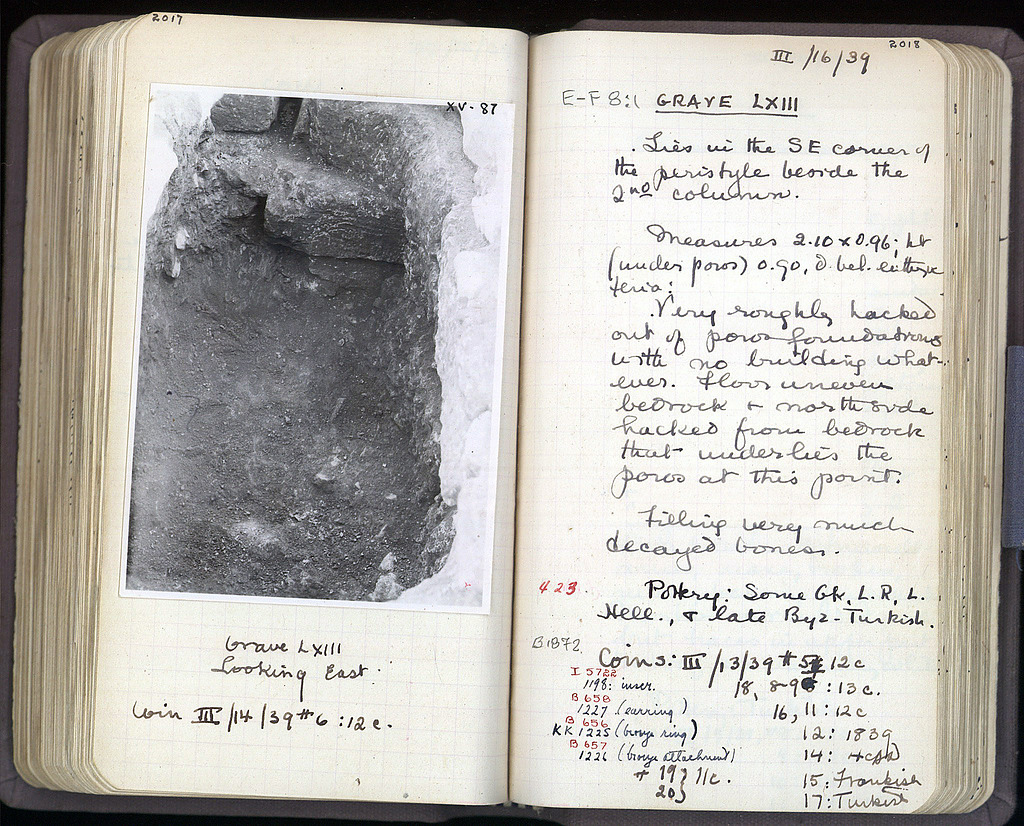 2017
XV-87
Grave LXIII
Looking East.
Coin III/14/39 #6 : 12c.
2018
III/16/39
E-F 8:1 GRAVE LXIII
Lies in the SE corner of
the peristyle beside the
2nd column.
Measures 2.10 x 0.96; ht
(under poros) 0.90,
teria:
Very roughly hacked
out of poros foundations
with no building what-
ever. Floor uneven
bedrock + north side
hacked from bedrock
that underlies the
poros at this point.
Filling very much
decayed bones.
423. Pottery: Some Gk, L.R, L.
Hell., + late Byz-Turkish.
B1872
Coins: III/13/39 #5 12c
I 5722
1198: inscr. 18, 8-9 : 13c.
B 658
1227 (earring) 16, 11 : 12c
B 656
KK 1225 (bronze ring) 12: 1839
B 657
1226 (bronze attachment) 14:
+ 19 } 11c. 15: Frankish
20 } 17: Turkish